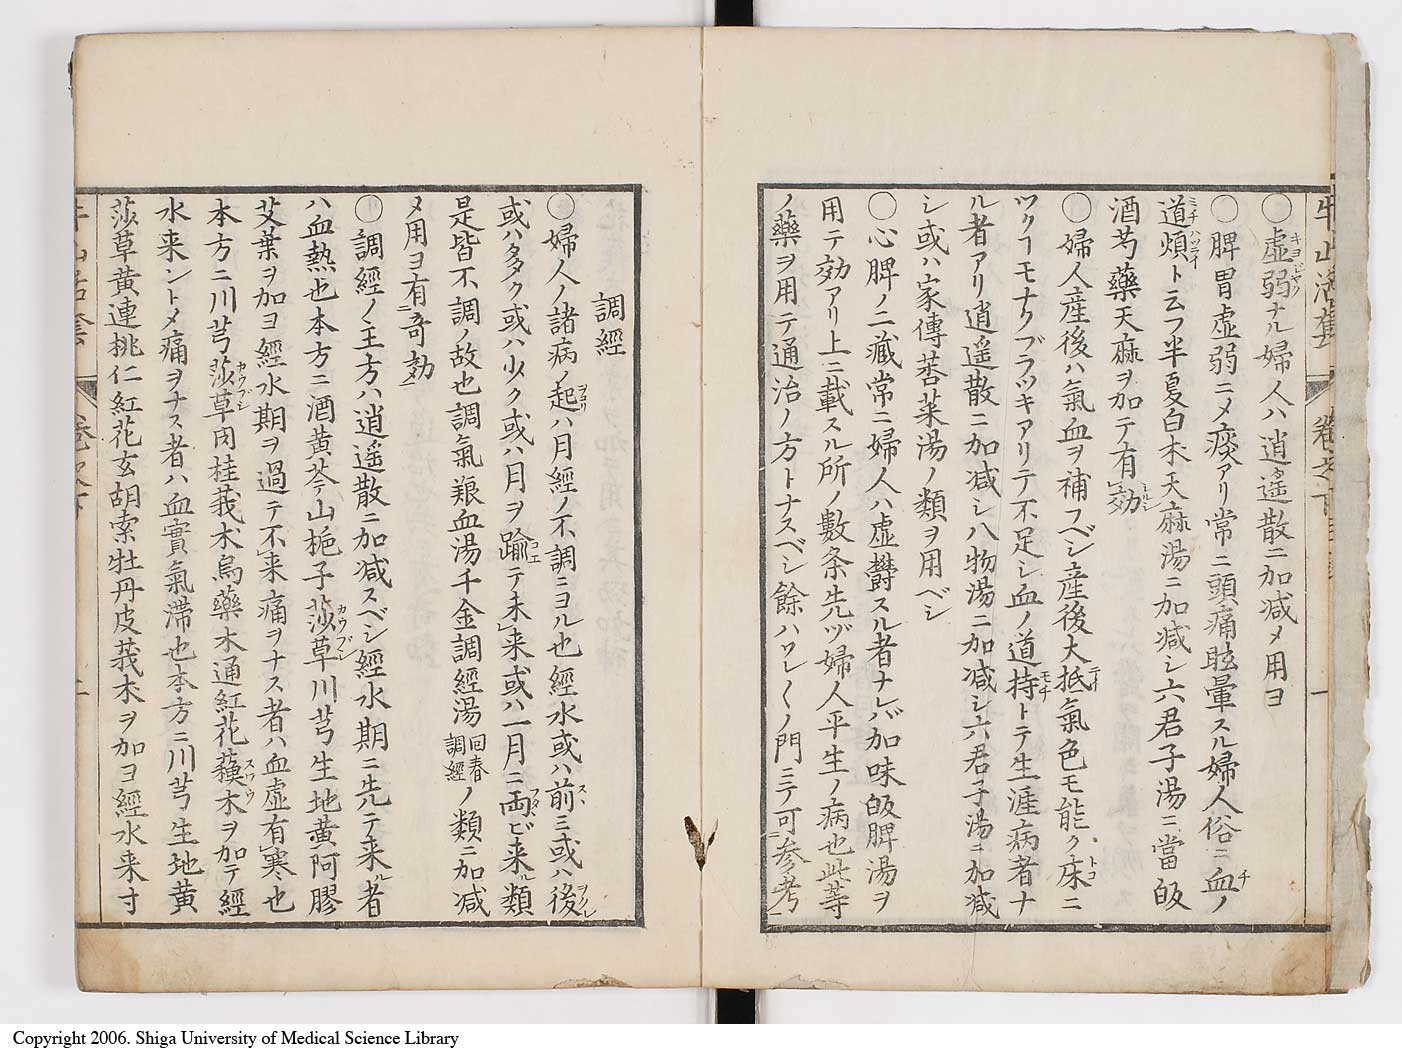 牛山活套 卷之下 一
○虚弱ナル婦人ハ逍遙散ニ加減〆用ヨ
○脾胃虚弱ニ〆痰アリ常ニ頭痛眩暈スル婦人俗ニ血ノ
道煩ト云フ半夏白朮天麻湯ニ加減シ六君子湯ニ當皈
酒芍藥天麻ヲ加テ有効
○婦人産後ハ氣血ヲ補フベシ産後大抵氣色モ能ク床ニ
ツクヿモナクブラツキアリテ不足シ血ノ道持トテ生涯病者ナ
ル者アリ逍遥散ニ加減シ八物湯ニ加減シ六君子湯ニ加減
シ或ハ家傳莟菜湯ノ類ヲ用ベシ
○心脾ノ二藏常ニ婦人ハ虚欝スル者ナレバ加味皈脾湯ヲ
用テ効アリ上ニ載スル所ノ數条先ヅ婦人平生ノ病也此等
ノ藥ヲ用テ通治ノ方トナスベシ餘ハワレ〱ノ門ニテ可参考
調經
○婦人ノ諸病ノ起ハ月經ノ不調ニヨル也經水或ハ前ミ或ハ後
或ハ多ク或ハ少ク或ハ月ヲ踰テ未来或ハ一月ニ両ビ来ル類
是皆不調ノ故也調氣養血湯千金調經湯回春調經ノ類ニ加减
〆用ヨ有奇効
○調經ノ主方ハ逍遥散ニ加减スベシ經水期ニ先テ来ル者
ハ血熱也本方ニ酒黄芩山梔子莎草川芎生地黄阿膠
艾葉ヲ加ヨ經水期ヲ過テ不来痛ヲナス者ハ血虚有寒也
本方ニ川芎莎草肉桂莪朮烏藥木通紅花蘓木ヲ加テ經
水来ントメ痛ヲナス者ハ血實氣滞也本方ニ川芎生地黄
莎草黄連桃仁紅花玄胡索牡丹皮莪朮ヲ加ヨ經水来寸
牛山活套 卷之下